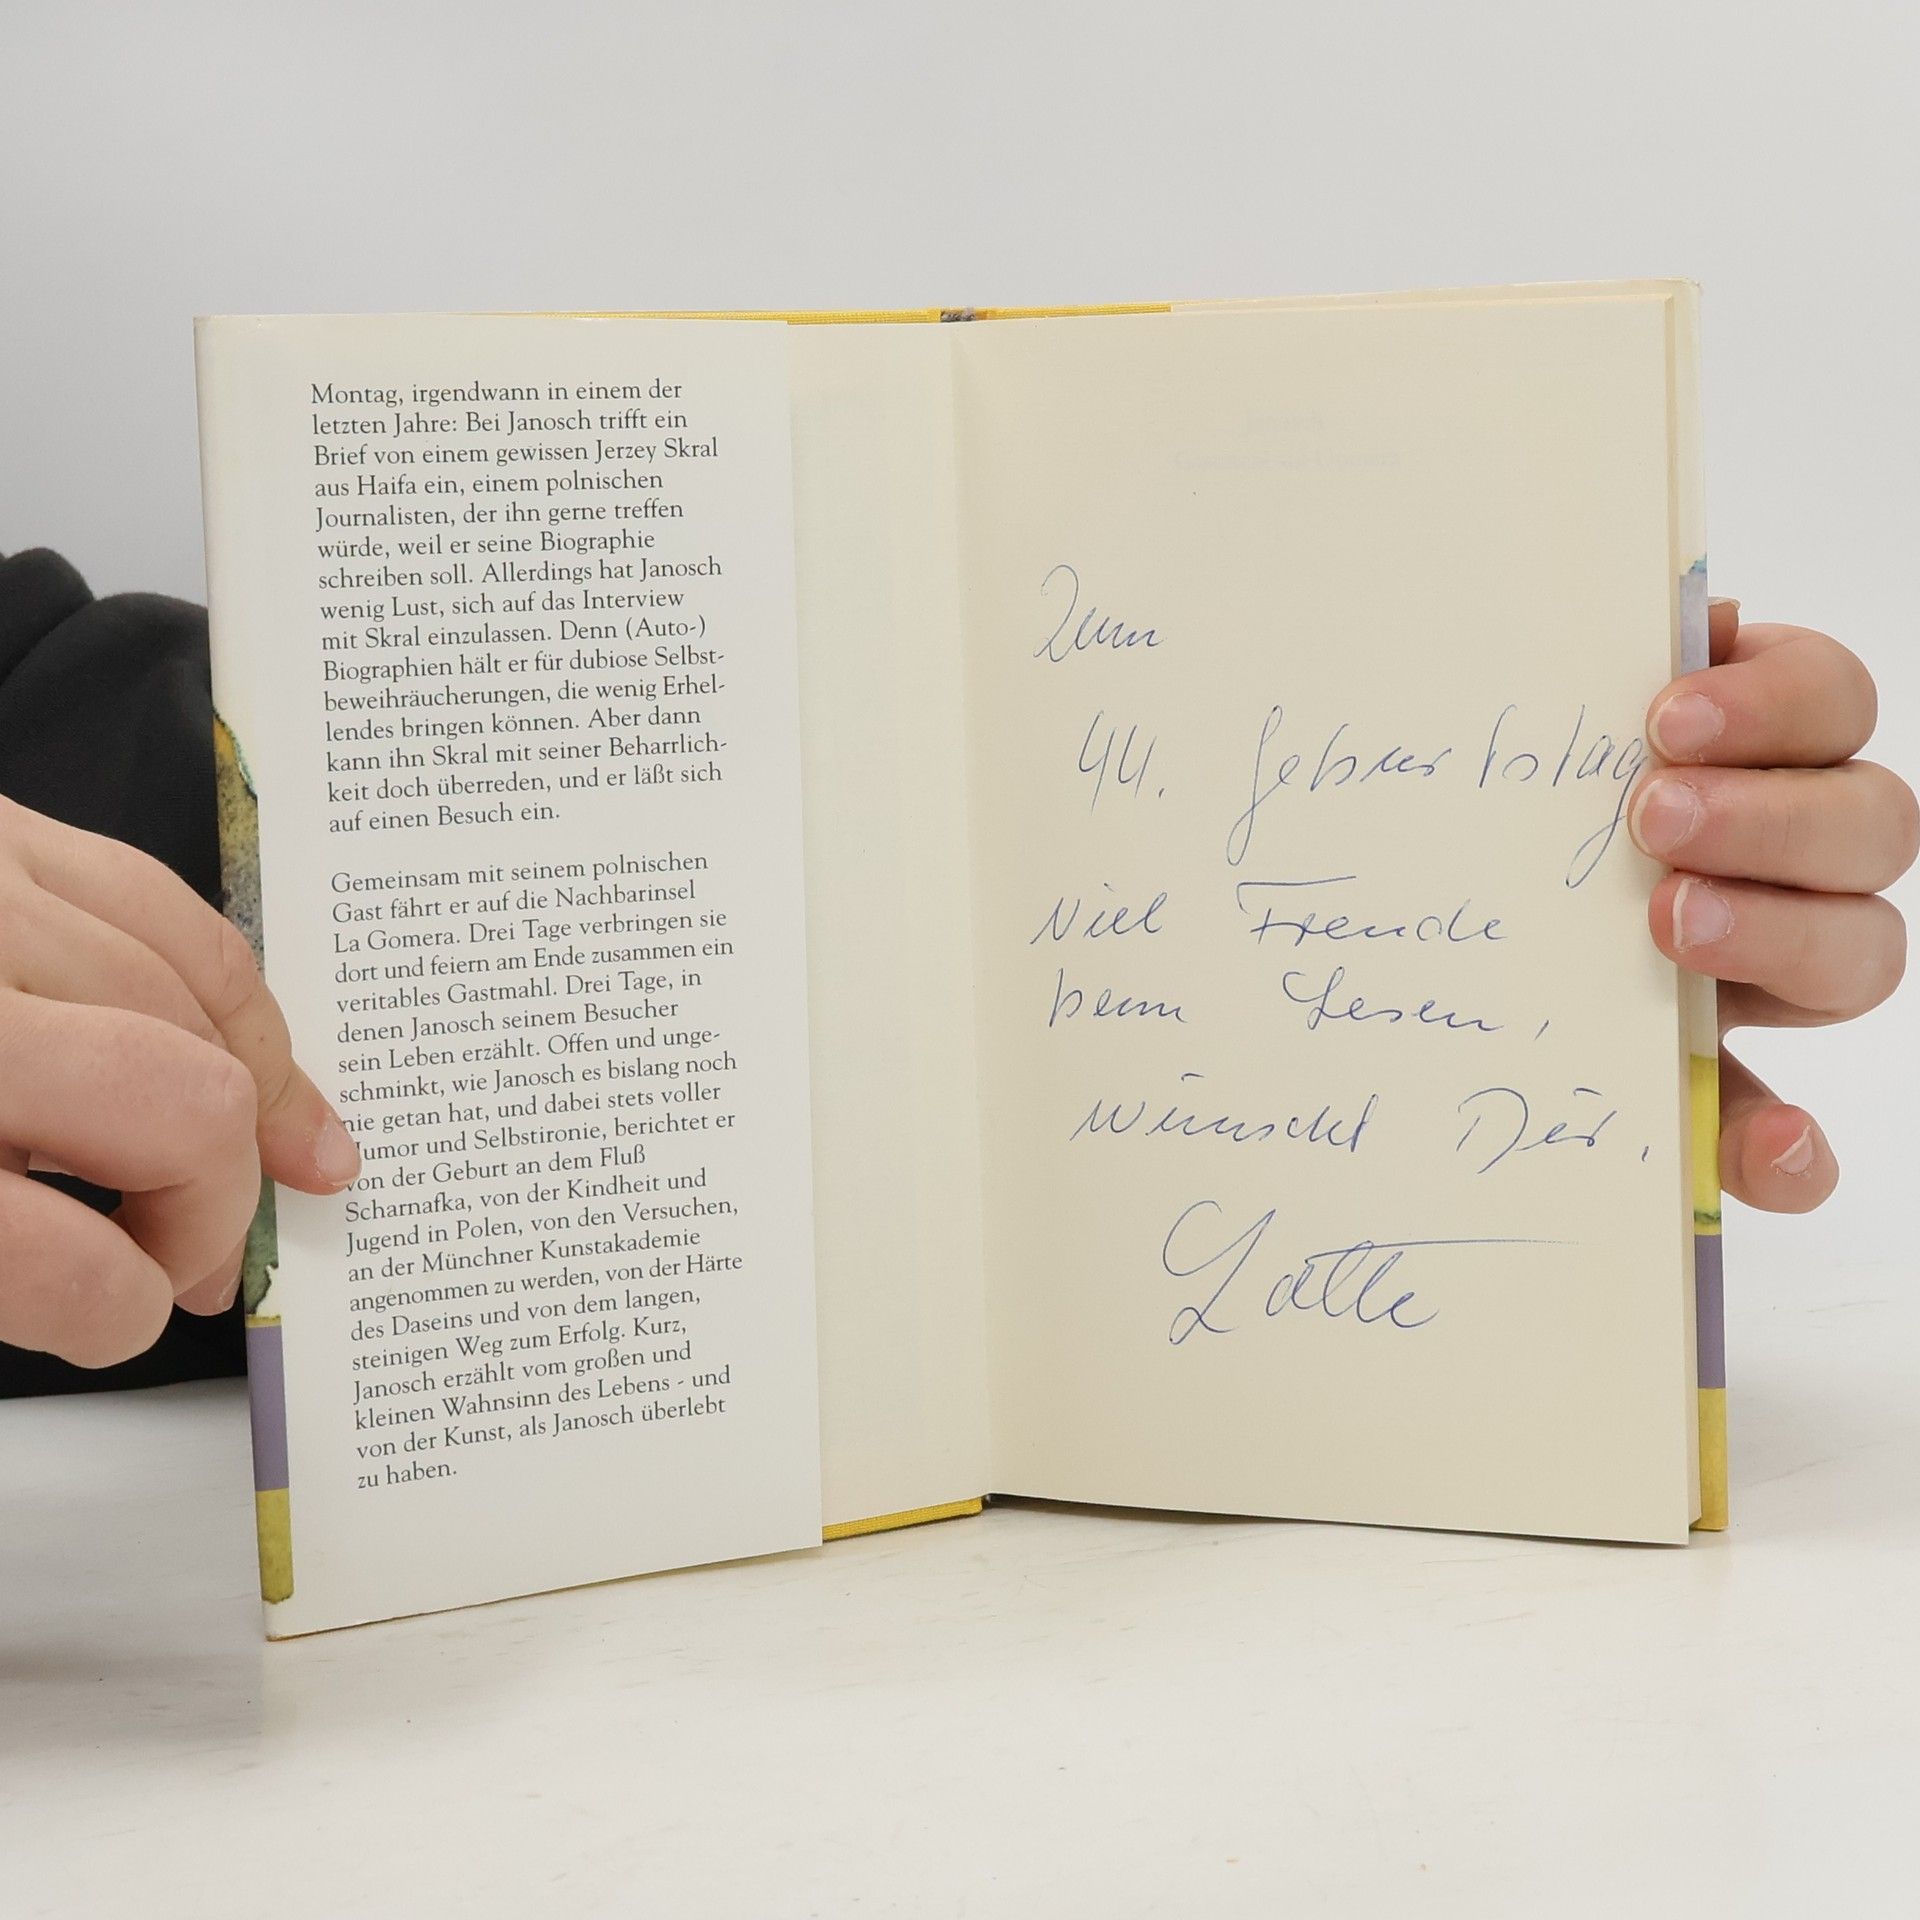 Montag, irgendwann in einem der
letzten Jahre: Bei Janosch trifft ein
Brief von einem gewissen Jerzey Skral
aus Haifa ein, einem polnischen
Journalisten, der ihn gerne treffen
würde, weil er seine Biographie
schreiben soll. Allerdings hat Janosch
wenig Lust, sich auf das Interview
mit Skral einzulassen. Denn (Auto-)
Biographien hält er für dubiose Selbst-
beweihräucherungen, die wenig Erhel-
lendes bringen können. Aber dann
kann ihn Skral mit seiner Beharrlich-
keit doch überreden, und er läßt sich
auf einen Besuch ein.
Gemeinsam mit seinem polnischen
Gast fährt er auf die Nachbarinsel
La Gomera. Drei Tage verbringen sie
dort und feiern am Ende zusammen ein
veritables Gastmahl. Drei Tage, in
denen Janosch seinem Besucher
sein Leben erzählt. Offen und unge-
schminkt, wie Janosch es bislang noch
nie getan hat, und dabei stets voller
Humor und Selbstironie, berichtet er
von der Geburt an dem Fluß
Scharnafka, von der Kindheit und
Jugend in Polen, von den Versuchen,
an der Münchner Kunstakademie
angenommen zu werden, von der Härte
des Daseins und von dem langen,
steinigen Weg zum Erfolg. Kurz,
Janosch erzählt vom großen und
kleinen Wahnsinn des Lebens - und
von der Kunst, als Janosch überlebt
zu haben.
Zum
44. Geburtstag
viel Freude
beim Lesen,
wünscht Dir,